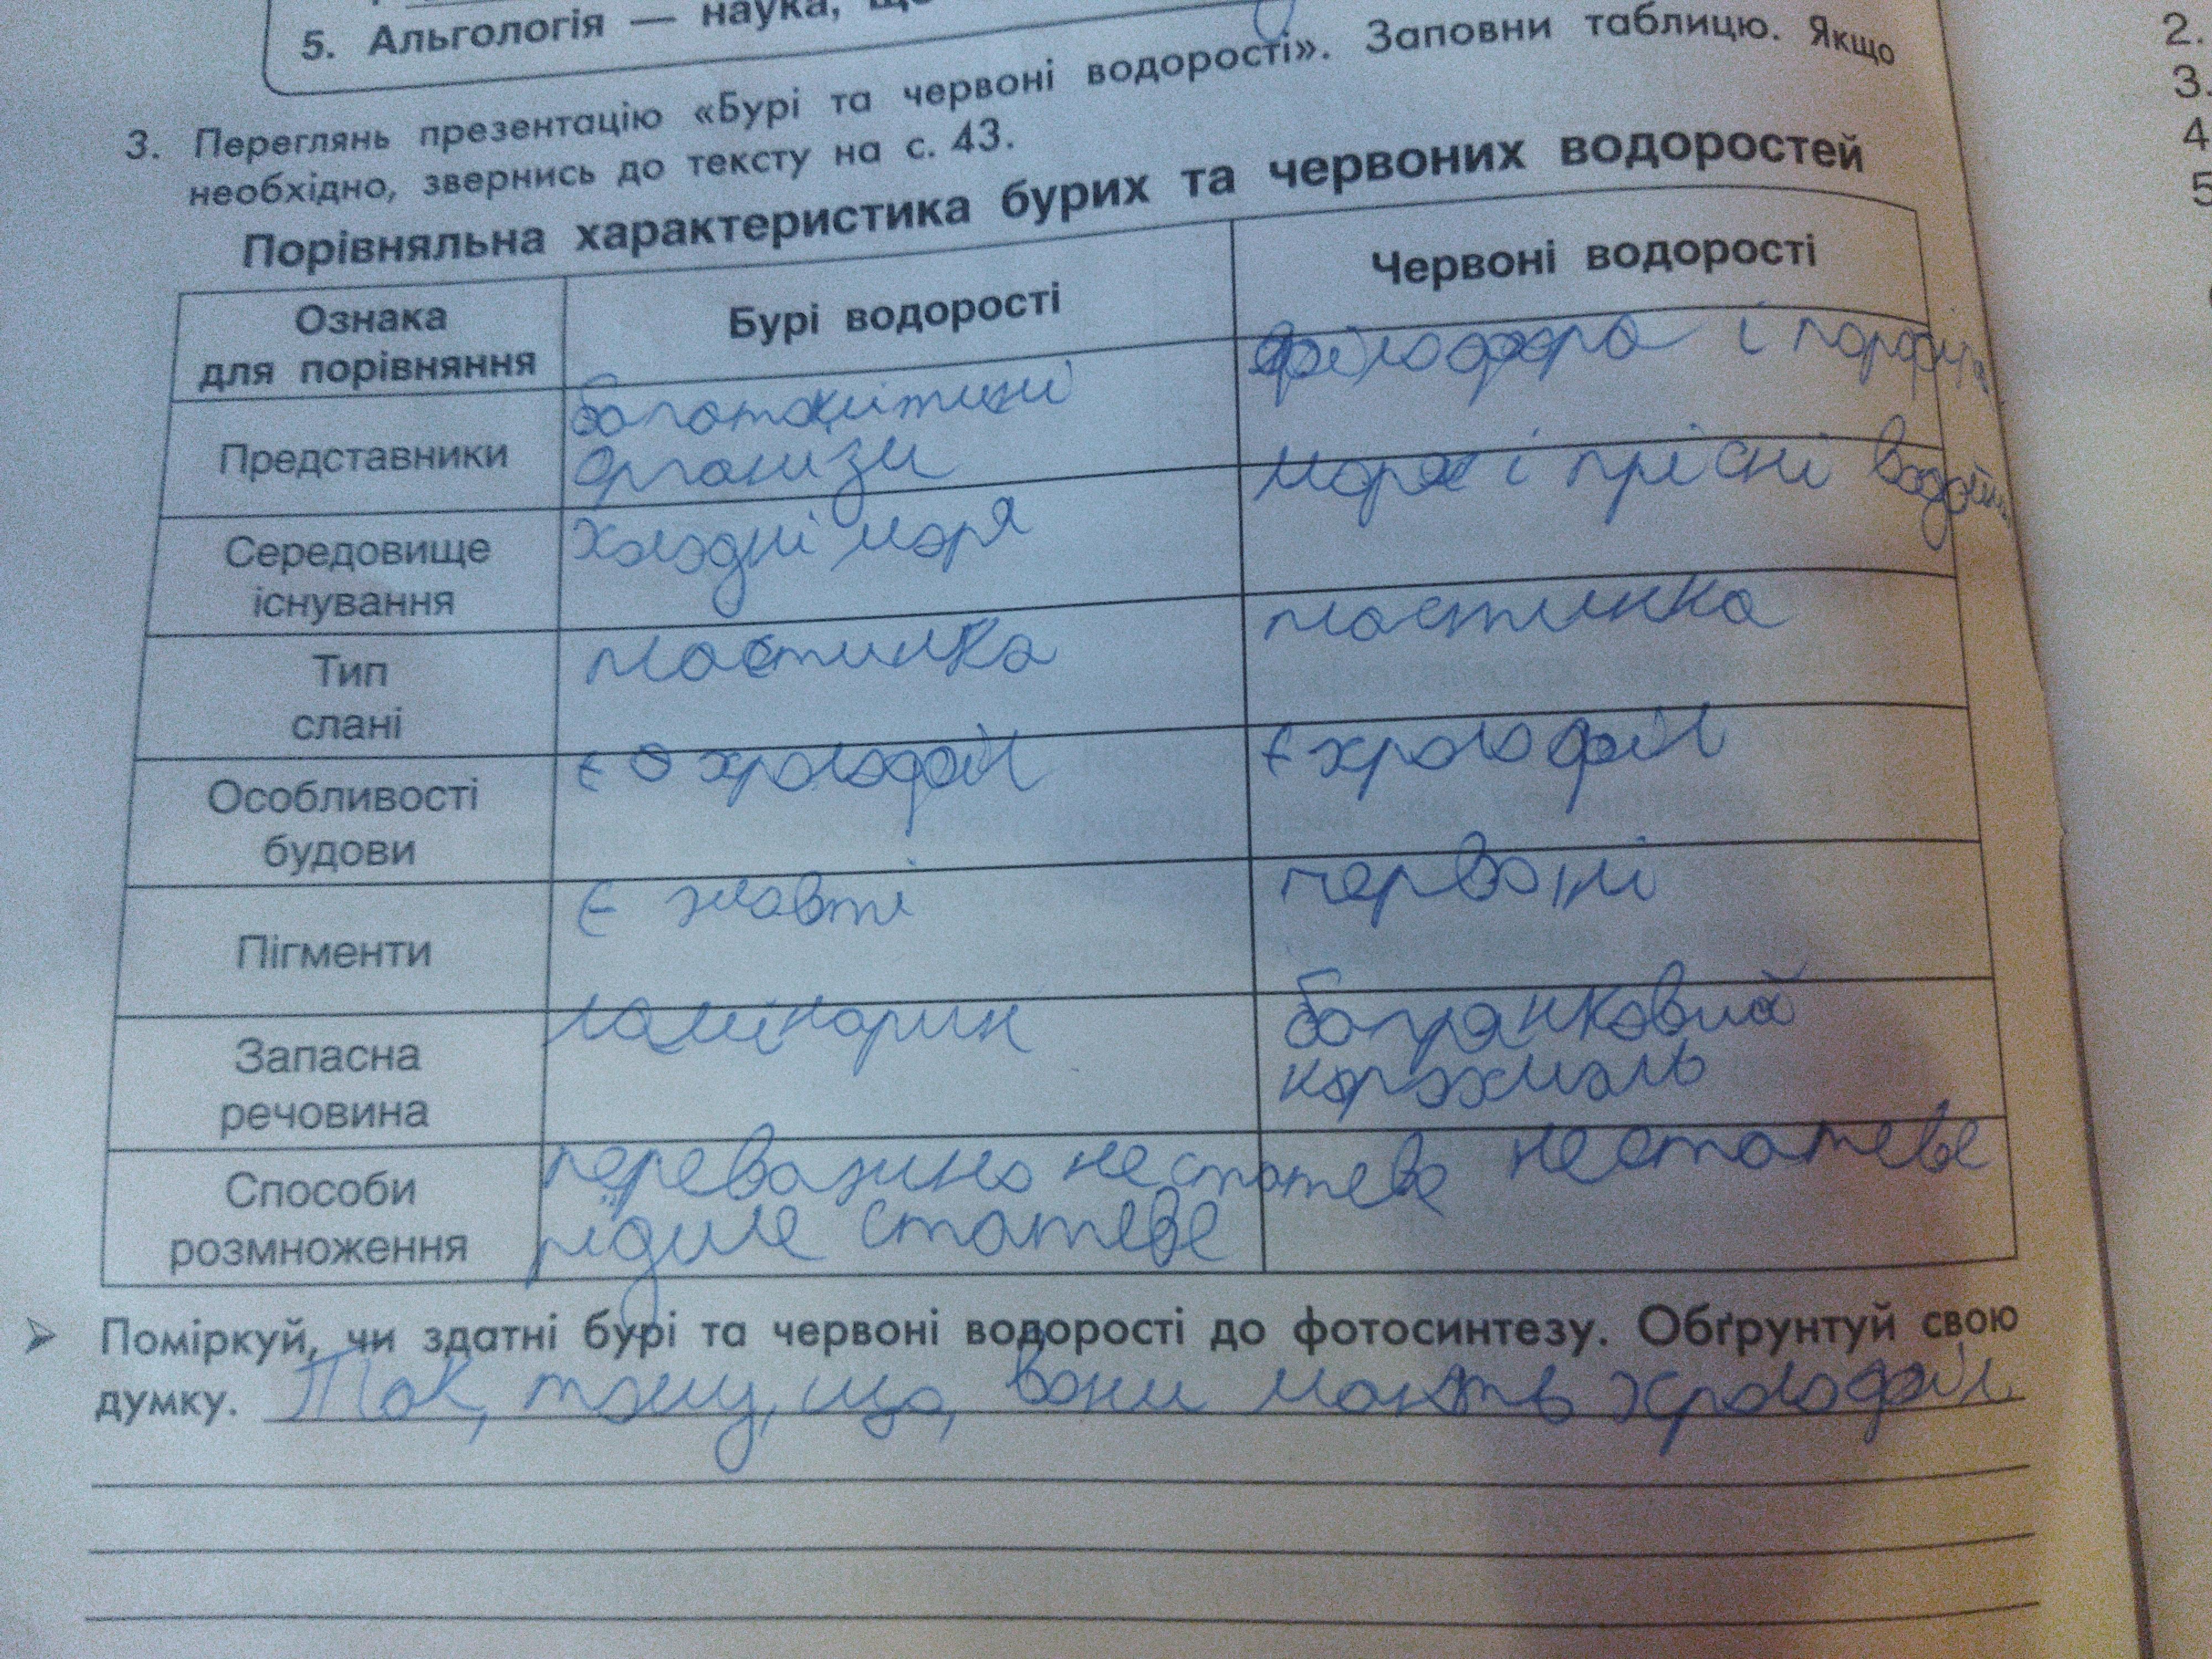 5. Альгологія — наука,
3. Переглянь презентацію «Бурі та червоні водорості». Заповни таблицю. Якщо
необхідно, звернись до тексту на с. 43.
Порівняльна характеристика бурих та червоних водоростей
Ознака
для порівняння
Бурі водорості
Червоні водорості
Представники
багатоклітинні
організи
філофора і порфіра
Середовище
існування
холодні моря
моря і прісні водойми
Тип
слані
пластинка
пластинка
Особливості
будови
є хролофіл
є хролофіл
Пігменти
є жовті
червоні
Запасна
речовина
ламінарин
багрянковий
крохмаль
Способи
розмноження
переважно нестатеве
рідше статеве
нестатеве
➤ Поміркуй, чи здатні бурі та червоні водорості до фотосинтезу. Обґрунтуй свою
думку. Так, тому, що, вони мають хролофіл
2.
3.
4
5